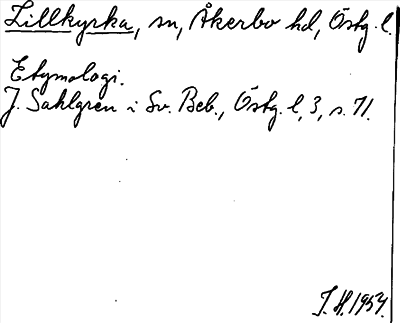 Lillkyrka, sn, Åkerbo hd, Östg. l.
Etymologi.
J. Sahlgren i Sv. Beb., Östg. l, 3, s. 71.
J. H. 1954.